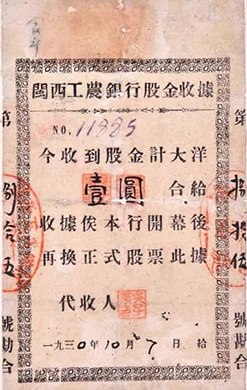 閩西工農銀行股金收據
NO. 11885
今收到股金計大洋
壹圓
合給
收據俟本行開幕後
再換正式股票此據
代收人
一九三〇年10月7日給
第
捌拾伍
號勘合
第
捌拾五
號勘合